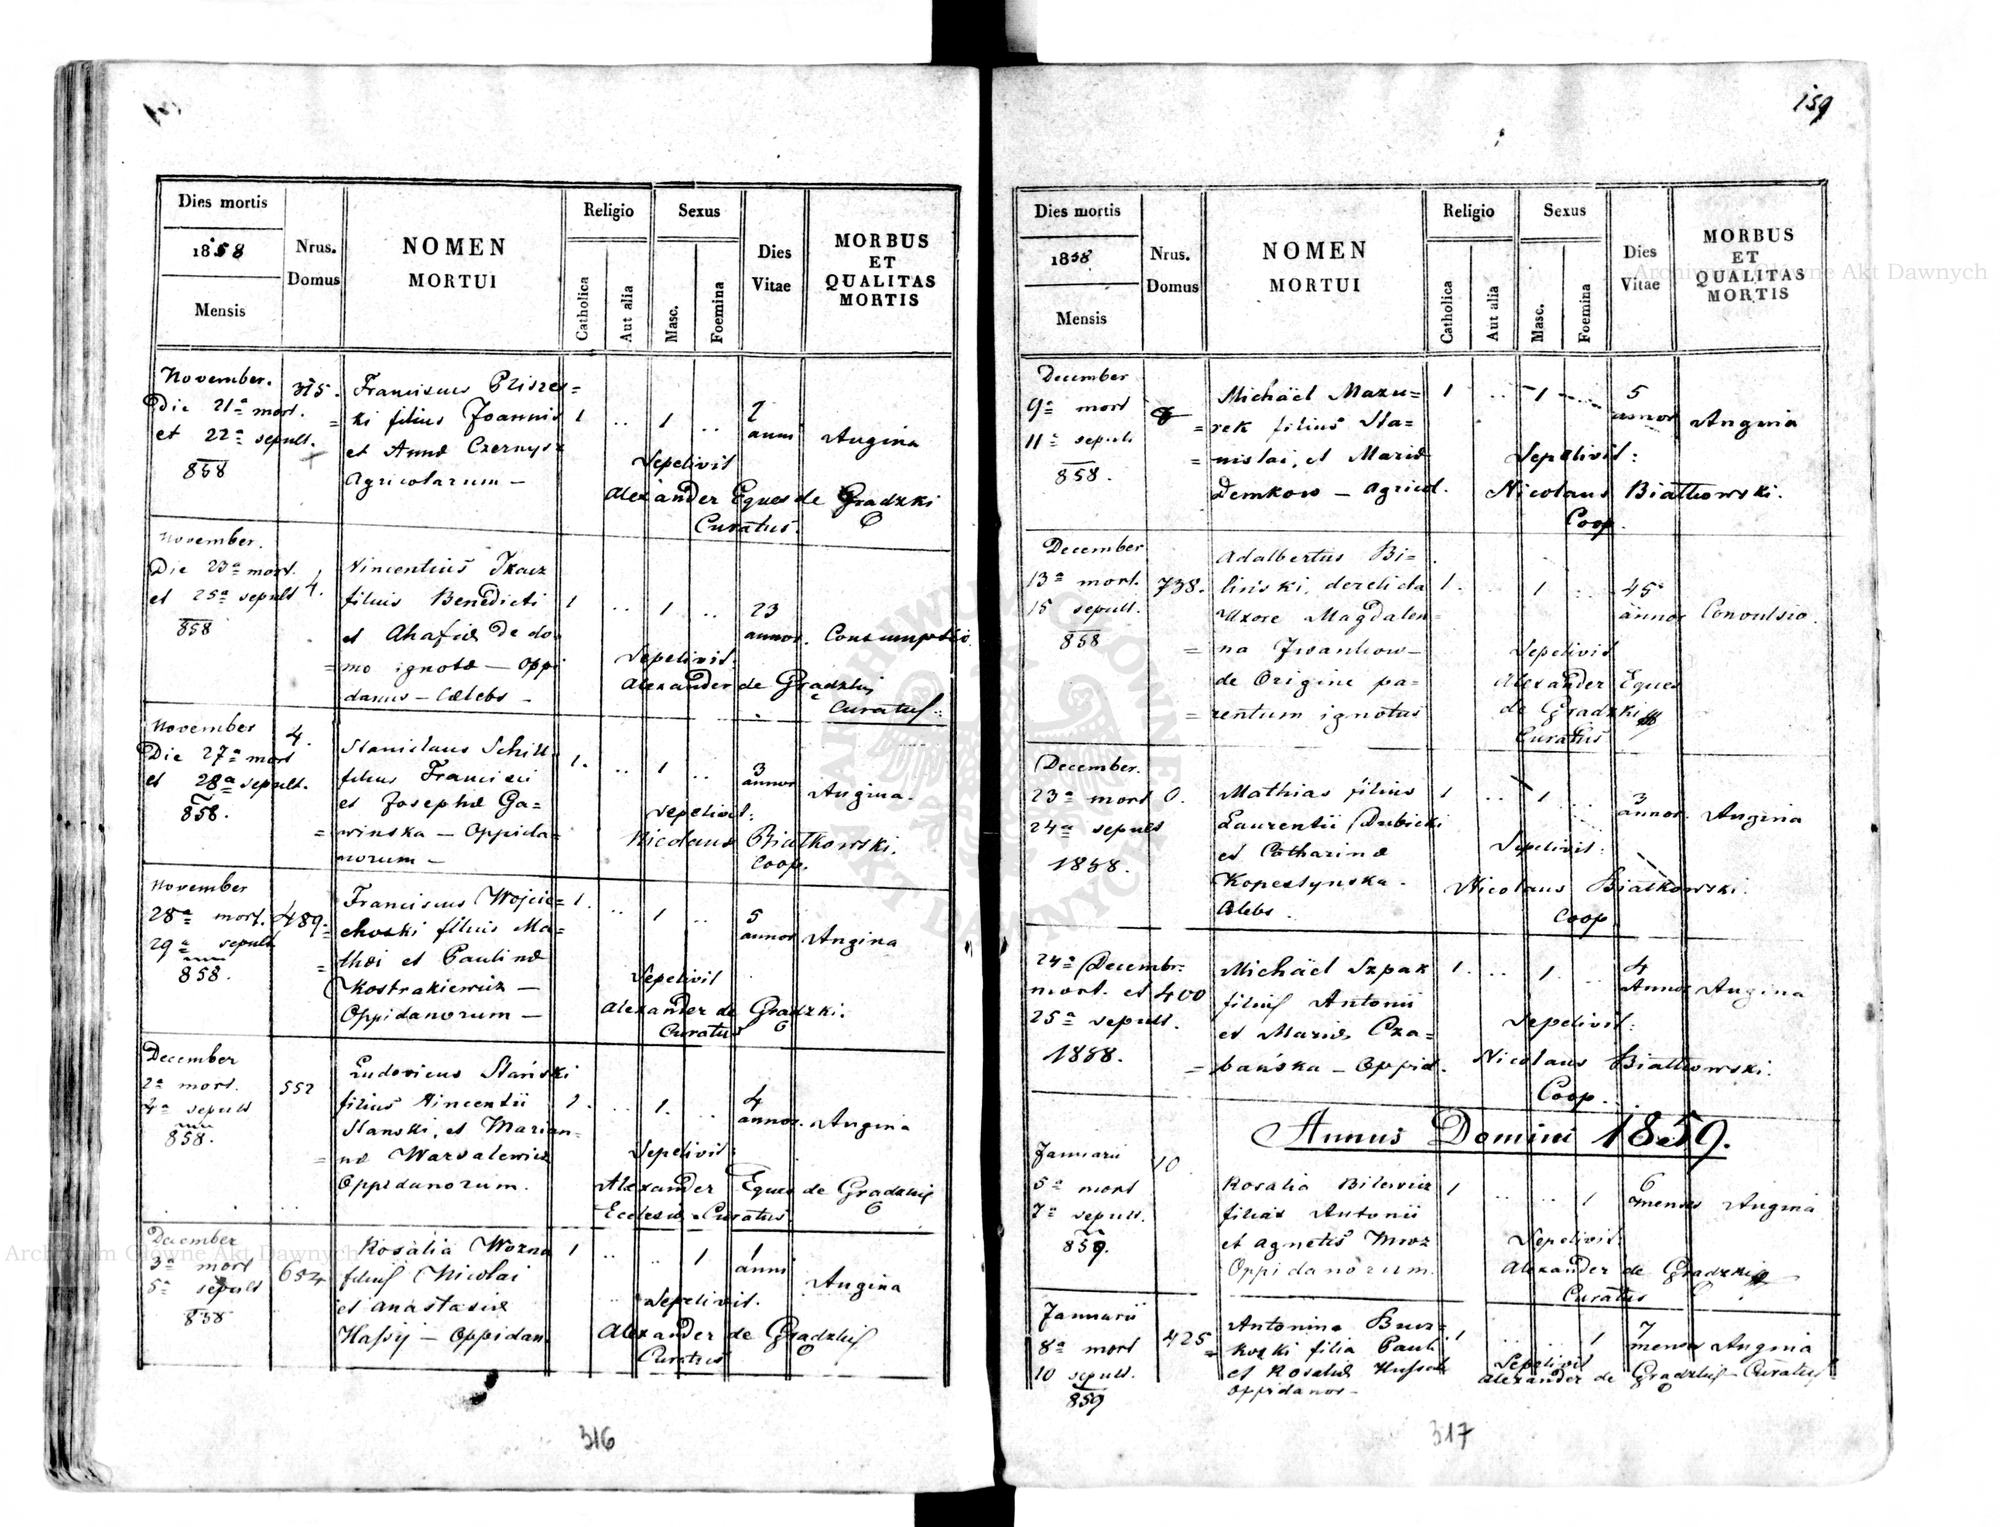 Dies mortis
1858
Mensis
Nrus.
Domus
NOMEN
MORTUI
Religio
Catholica
Aut alia
Sexus
Masc.
Foemina
Dies
Vitae
MORBUS
ET
QUALITAS
MORTIS
November.
Die 21a mort.
et 22a sepult.
858
315.
Franciscus
ki filius Joannis
et Annæ
Agricolarum —
1 .. 1 ..
2
anni
Angina
Sepelivit
Alexander Eques de Gradzki
Curatus.
November.
Die 23a mort.
et 25a sepult
858
4.
Vincentius Tkacz
filius Benedicti
et Ahafiæ de do
mo ignotæ — Oppi
danus — Cælebs —
1 .. 1 ..
23
annor.
Consumptio
Sepelivit.
Alexander de Gradzki
Curatus.
November
Die 27a mort
et 28a sepult.
858.
4.
Stanislaus
filius Francisci
et Josephæ Ga=
winska — Oppida=
norum —
1. .. 1 ..
3
annor
Angina.
Sepelivit:
Nicolaus Białkowski.
Coop.
November
28a mort.
29a sepult
858.
489.
Franciscus Wojcie=
choski filius Ma=
thæi et Paulinæ
Kostrakiewicz —
Oppidanorum —
1. .. 1 ..
5
annor
Angina
Sepelivit
Alexander de Gradzki.
Curatus
December
2a mort.
4a sepult
858.
552
Ludovicus Stański
filius Vincentii
Stanski, et Marian=
næ Warvalewicz
Oppidanorum.
1. .. 1. ..
4
annor.
Angina
Sepelivit:
Alexander Eques de Gradzki
Ecclesiæ Curatus
December
3a mort
5a sepult
858
654
Rosalia Wozna
filius Nicolai
et Anastasiæ
Hassij — Oppidan.
1 .. .. 1
1
anni
Angina
Sepelivit.
Alexander de Gradzki
Curatus
316
159
Dies mortis
1858
Mensis
Nrus.
Domus
NOMEN
MORTUI
Religio
Catholica
Aut alia
Sexus
Masc.
Foemina
Dies
Vitae
MORBUS
ET
QUALITAS
MORTIS
December
9a mort
11a sepult
858.
Michäel Mazu=
rek filius Sta=
nislai, et Mariæ
Demkow — Agricol.
1 .. 1 ..
5
annor
Angina
Sepelivit:
Nicolaus Białkowski.
Coop.
December
13a mort.
15 sepult.
858
738.
Adalbertus Bi=
liński, derelicta
Uxore Magdalen=
na Iwankow —
de Origine pa=
rentum ignotus
1. .. 1 ..
45
annor
Convulsio.
Sepelivit
Alexander Eques
de Gradzki
Curatus
December.
23a mort
24a sepult
1858.
0.
Mathias filius
Laurentii Dubicki
et Catharinæ
Kopestynska.
Celebs.
1 .. 1 ..
3
annor.
Angina
Sepelivit:
Nicolaus Białkowski.
Coop
24a Decembr.
mort. et
25a sepult.
1858.
400
Michäel Szpak
filius Antonii
et Mariæ Cza=
bańska — Oppid.
1. .. 1. ..
4
Annor
Angina
Sepelivit:
Nicolaus Białkowski.
Coop.
Annus Domini 1859.
Januarii
5a mort
7a sepult.
859.
10
Rosalia Bilewicz
filia Antonii
et Agnetis Mroz
Oppidanorum.
1 .. .. 1
6
menses
Angina
Sepelivit.
Alexander de Gradzki
Curatus
Januarii
8a mort
10 sepult.
859
425
Antonina
filia Pauli
et Rosaliæ
Oppidanor —
1 .. .. 1
7
menses
Angina
Sepelivit
Alexander de Gradzki — Curatus
317
Archiwum Główne Akt Dawnych
Archiwum Główne Akt Dawnych
ARCHIWUM GŁÓWNE AKT DAWNYCH